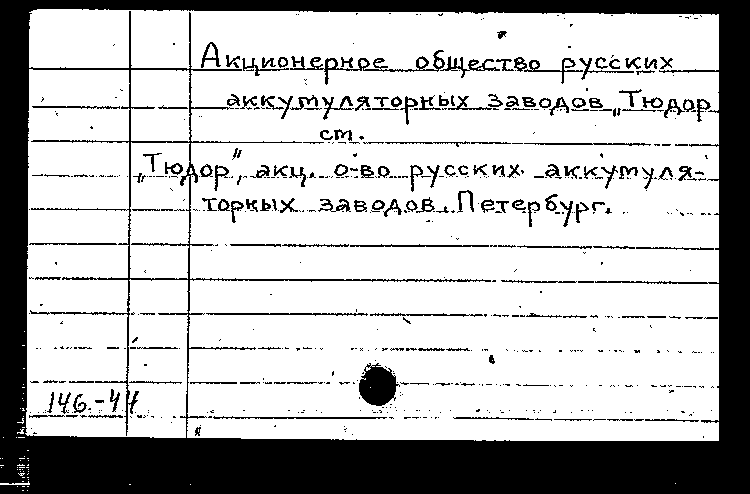 Акционерное общество русских
аккумуляторных заводов „Тюдор
см.
„Тюдор", акц. о-во русских аккумуля-
торных заводов. Петербург.
146.-44